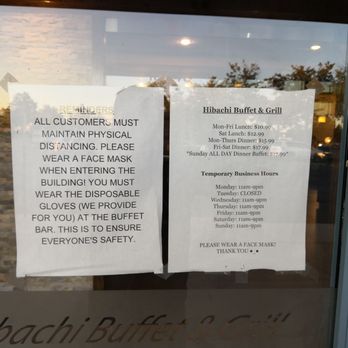 REMINDERS
ALL CUSTOMERS MUST
MAINTAIN PHYSICAL
DISTANCING. PLEASE
WEAR A FACE MASK
WHEN ENTERING THE
BUILDING! YOU MUST
WEAR THE DISPOSABLE
GLOVES (WE PROVIDE
FOR YOU) AT THE BUFFET
BAR. THIS IS TO ENSURE
EVERYONE'S SAFETY.
Hibachi Buffet & Grill
Mon-Fri Lunch: $10.99
Sat Lunch: $12.99
Mon-Thurs Dinner: $15.99
Fri-Sat Dinner: $17.99
*Sunday ALL DAY Dinner Buffet: $17.99*
Temporary Business Hours
Monday: 11am-9pm
Tuesday: CLOSED
Wednesday: 11am-9pm
Thursday: 11am-9pm
Friday: 11am-9pm
Saturday: 11am-9pm
Sunday: 11am-9pm
PLEASE WEAR A FACE MASK!
THANK YOU
Hibachi Buffet & Grill